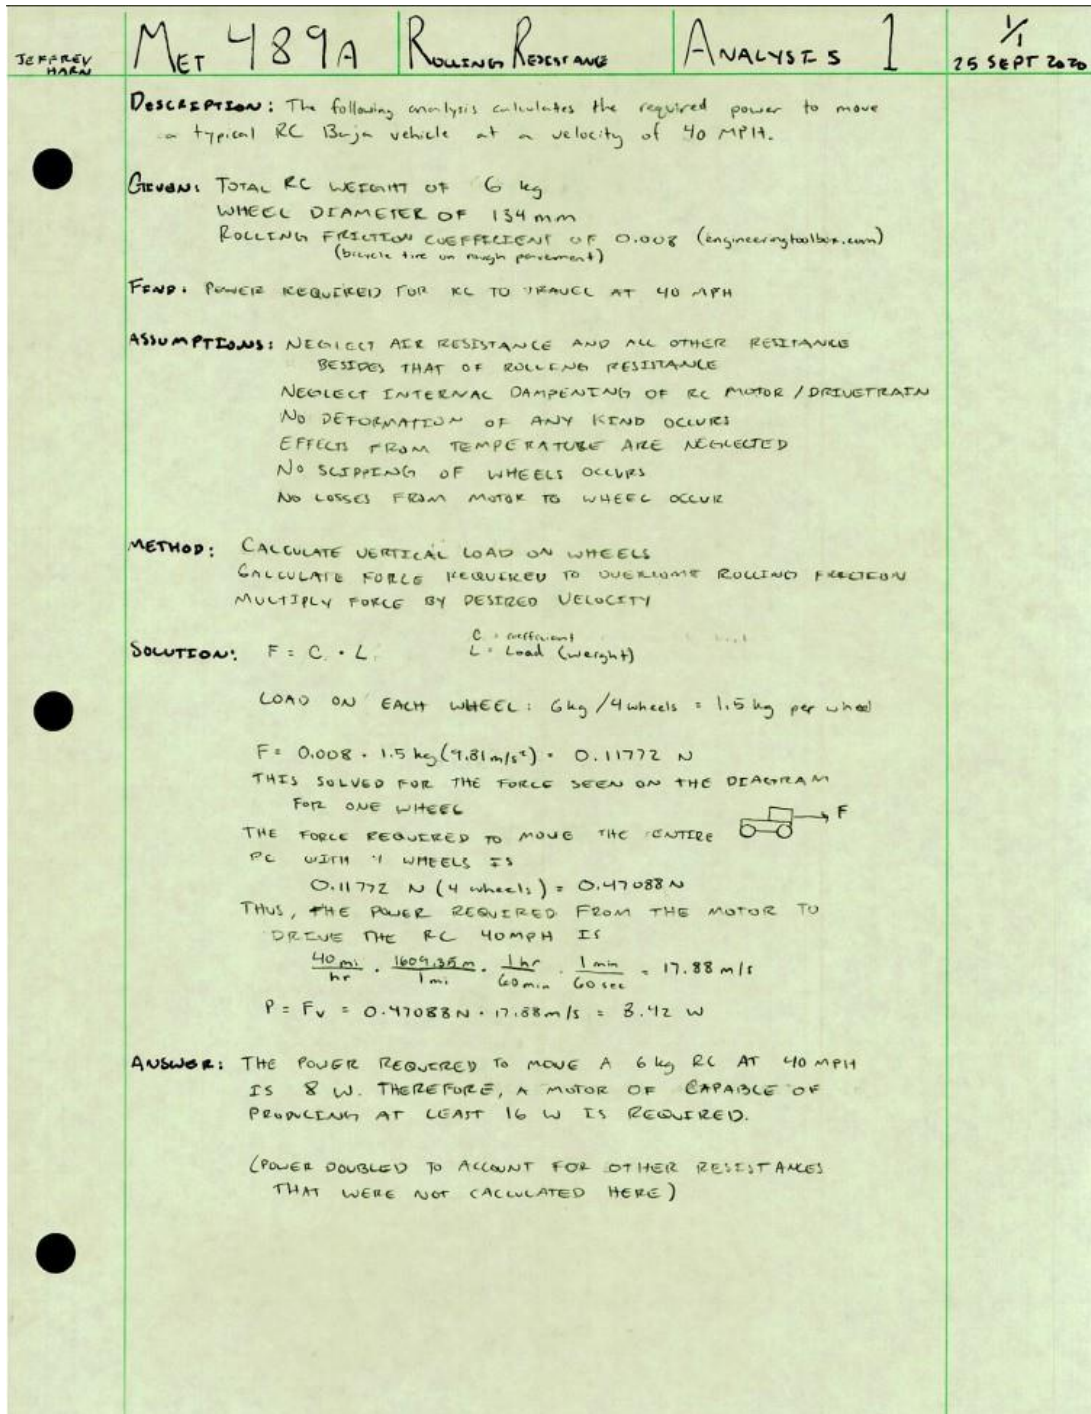 JEFFREY HARN
MET 489A
ROLLING RESISTANCE
ANALYSIS 1
1/1
25 SEPT 2020
DESCRIPTION: The following analysis calculates the required power to move
a typical RC Baja vehicle at a velocity of 40 MPH.
GIVEN: TOTAL RC WEIGHT OF 6 kg
WHEEL DIAMETER OF 134 mm
ROLLING FRICTION COEFFICIENT OF 0.008 (engineeringtoolbox.com)
(bicycle tire on rough pavement)
FIND: POWER REQUIRED FOR RC TO TRAVEL AT 40 MPH
ASSUMPTIONS: NEGLECT AIR RESISTANCE AND ALL OTHER RESITANCE
BESIDES THAT OF ROLLING RESISTANCE
NEGLECT INTERNAL DAMPENING OF RC MOTOR / DRIVETRAIN
NO DEFORMATION OF ANY KIND OCCURS
EFFECTS FROM TEMPERATURE ARE NEGLECTED
NO SLIPPING OF WHEELS OCCURS
NO LOSSES FROM MOTOR TO WHEEL OCCUR
METHOD: CALCULATE VERTICAL LOAD ON WHEELS
CALCULATE FORCE REQUIRED TO OVERCOME ROLLING FRICTION
MULTIPLY FORCE BY DESIRED VELOCITY
SOLUTION: F = C · L
C = coefficient
L = Load (weight)
LOAD ON EACH WHEEL: 6kg / 4 wheels = 1.5 kg per wheel
F = 0.008 · 1.5 kg (9.81 m/s²) = 0.11772 N
THIS SOLVED FOR THE FORCE SEEN ON THE DIAGRAM
FOR ONE WHEEL
F
THE FORCE REQUIRED TO MOVE THE ENTIRE
RC WITH 4 WHEELS IS
0.11772 N (4 wheels) = 0.47088 N
THUS, THE POWER REQUIRED FROM THE MOTOR TO
DRIVE THE RC 40MPH IS
40 mi/hr · 1609.35 m/1 mi · 1 hr/60 min · 1 min/60 sec = 17.88 m/s
P = Fv = 0.47088 N · 17.88 m/s = 8.42 W
ANSWER: THE POWER REQUIRED TO MOVE A 6 kg RC AT 40 MPH
IS 8 W. THEREFORE, A MOTOR OF CAPABLE OF
PRODUCING AT LEAST 16 W IS REQUIRED.
(POWER DOUBLED TO ACCOUNT FOR OTHER RESISTANCES
THAT WERE NOT CALCULATED HERE)